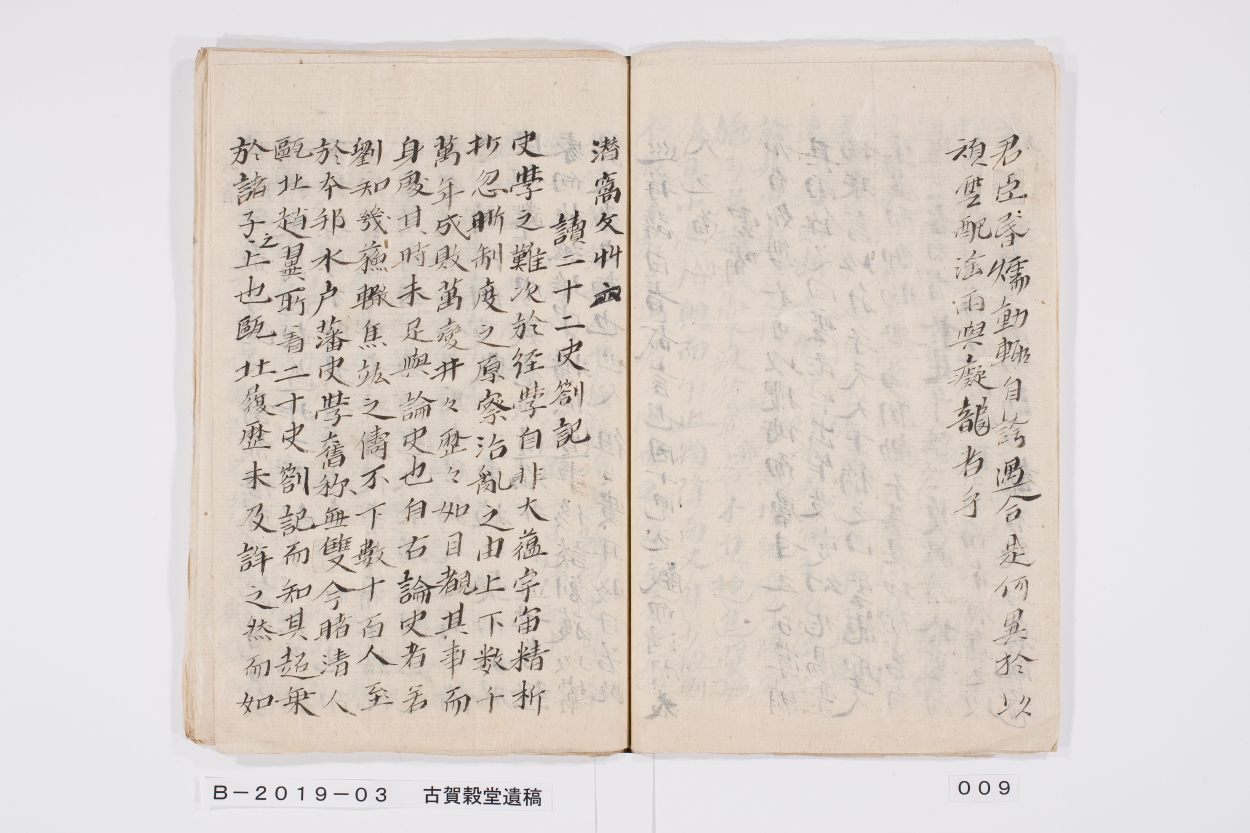 君臣孱懦動輒自誇遇合是何異於以
頑雲配淫雨與癡龍者乎
潜窩文艸
讀二十二史劄記
史學之難次於経學自非大蘊宇宙精析
析忽晰制度之原察治亂之由上下数千
萬年成敗萬変井々歴々如目覩其事而
身處其時未足與論史也自古論史者若
劉知幾蘓轍焦竑之儔不下數十百人至
於本邦水户藩史學舊称無雙今睹清人
甌北趙翼所着二十史劄記而知其超乗
於諸子之上也甌北履歴未及詳之然而如
B－2019－03　古賀穀堂遺稿
009